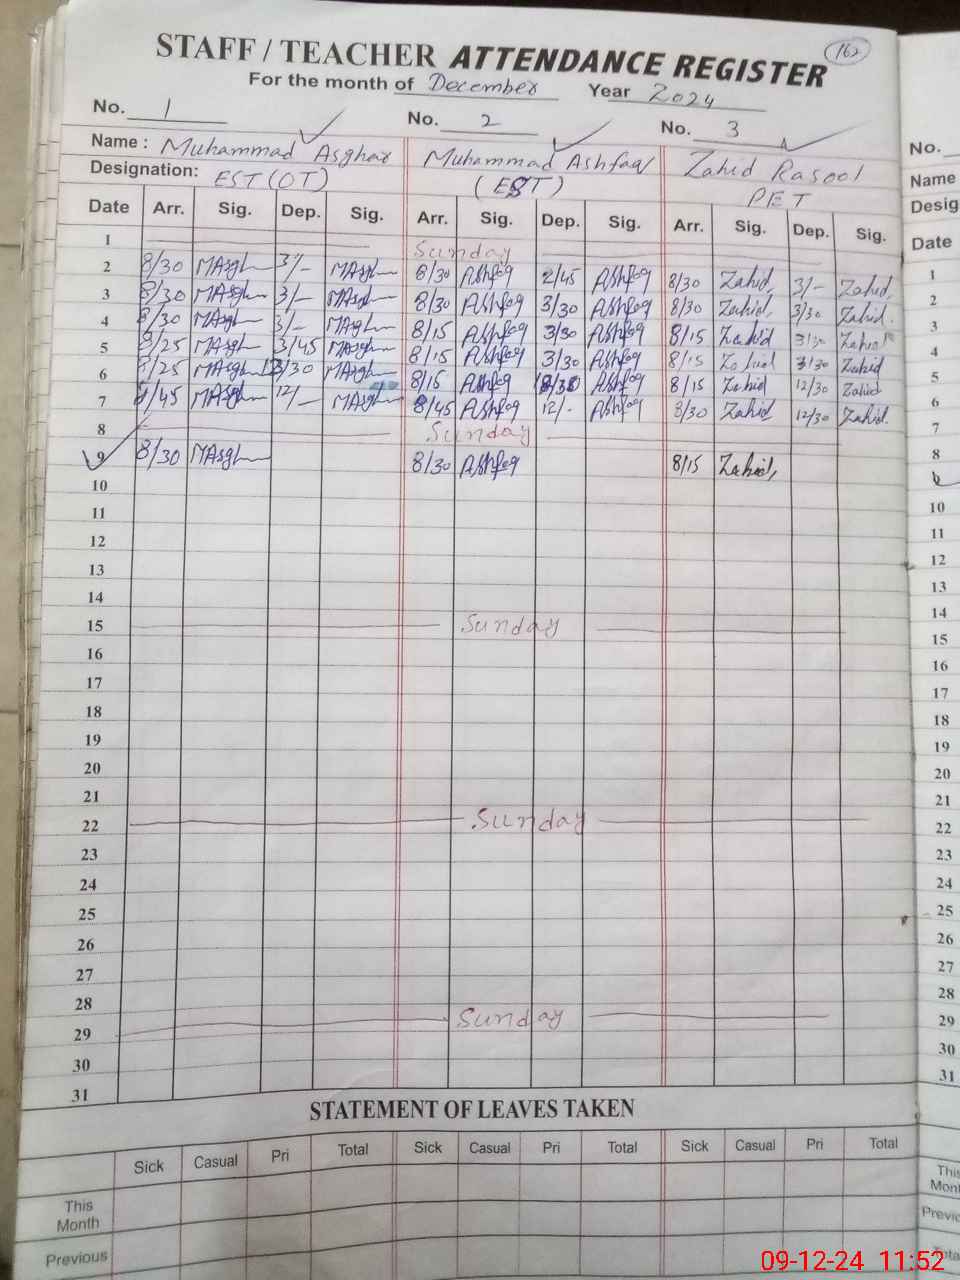 STAFF / TEACHER ATTENDANCE REGISTER 162
For the month of December Year 2024
No. 1 No. 2 No. 3
Name : Muhammad Asghar Muhammad Ashfaq Zahid Rasool
Designation: EST (OT) (EST) PET
Date Arr. Sig. Dep. Sig. Arr. Sig. Dep. Sig. Arr. Sig. Dep. Sig.
1 Sunday
2 8/30 MAsgh 3/- MAsgh 8/30 Ashfaq 2/45 Ashfaq 8/30 Zahid, 3/- Zahid,
3 8/30 MAsgh 3/- MAsgh 8/30 Ashfaq 3/30 Ashfaq 8/30 Zahid, 3/30 Zahid.
4 8/30 MAsgh 3/- MAsgh 8/15 Ashfaq 3/30 Ashfaq 8/15 Zahid 3/30 Zahid
5 8/25 MAsgh 3/45 MAsgh 8/15 Ashfaq 3/30 Ashfaq 8/15 Zahid 3/30 Zahid
6 8/25 MAsgh 12/30 MAsgh 8/15 Ashfaq Ashfaq 8/15 Zahid 12/30 Zahid
7 8/45 MAsgh 12/- MAsgh 8/45 Ashfaq 12/- Ashfaq 8/30 Zahid 12/30 Zahid.
8 Sunday
9 8/30 MAsgh 8/30 Ashfaq 8/15 Zahid,
10
11
12
13
14
15 Sunday
16
17
18
19
20
21
22 Sunday
23
24
25
26
27
28
29 Sunday
30
31
STATEMENT OF LEAVES TAKEN
Sick Casual Pri Total Sick Casual Pri Total Sick Casual Pri Total
This Month
Previous
No.
Name
Desig
Date
1
2
3
4
5
6
7
8
10
11
12
13
14
15
16
17
18
19
20
21
22
23
24
25
26
27
28
29
30
31
This
Mont
Previo
Tota
09-12-24 11:52